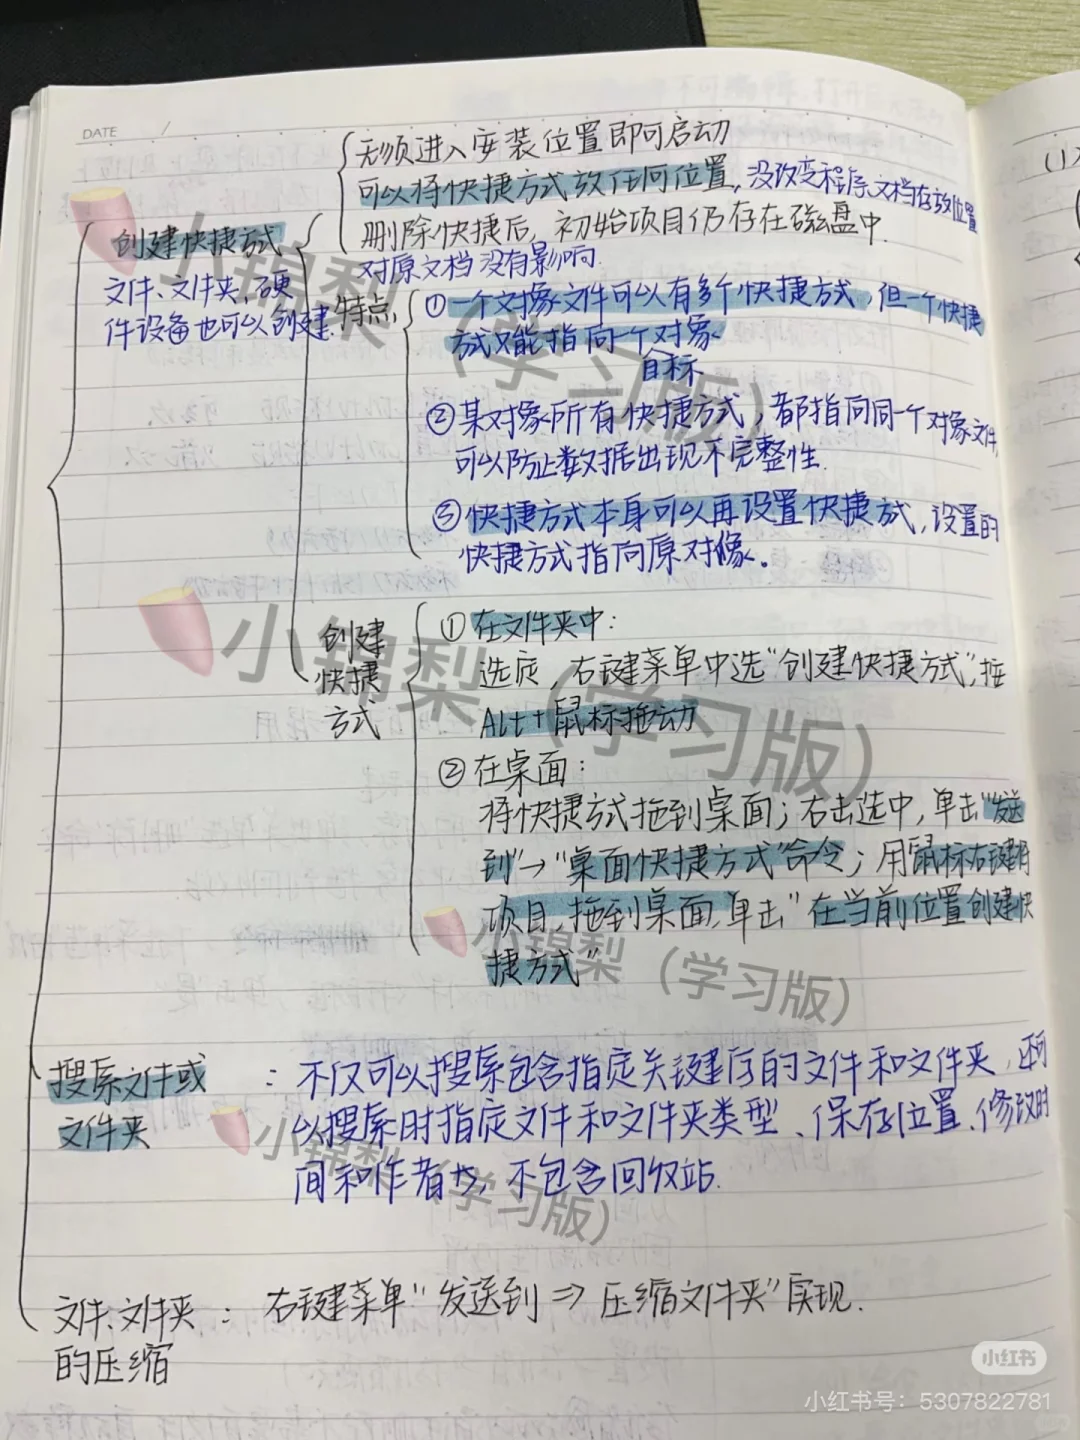 DATE /
无须进入安装位置即可启动
可以将快捷方式放任何位置，没改变程序、文档存放位置
删除快捷后，初始项目仍存在磁盘中.
对原文档没有影响.
创建快捷方式
文件、文件夹、硬
件设备也可以创建.
特点
①一个对象文件可以有多个快捷方式，但一个快捷
方式只能指向一个对象
目标
②某对象所有快捷方式，都指向同一个对象文件,
可以防止数据出现不完整性.
③快捷方式本身可以再设置快捷方式，设置的
快捷方式指向原对像。
创建
快捷
方式
①在文件夹中：
选定，右键菜单中选“创建快捷方式”，按
Alt+鼠标拖动
②在桌面：
将快捷方式拖到桌面；右击选中，单击“发送
到”→“桌面快捷方式”命令；用鼠标右键将
项目，拖到桌面，单击“在当前位置创建快
捷方式”
搜索文件或
文件夹
：不仅可以搜索包含指定关键字的文件和文件夹，还可
以搜索时指定文件和文件夹类型、保存位置、修改时
间和作者等，不包含回收站.
文件、文件夹
的压缩
：右键菜单“发送到⇒压缩文件夹”实现.
小锦梨（学习版）
小锦梨（学习版）
小锦梨（学习版）
小锦梨（学习版）
小红书
小红书号：5307822781